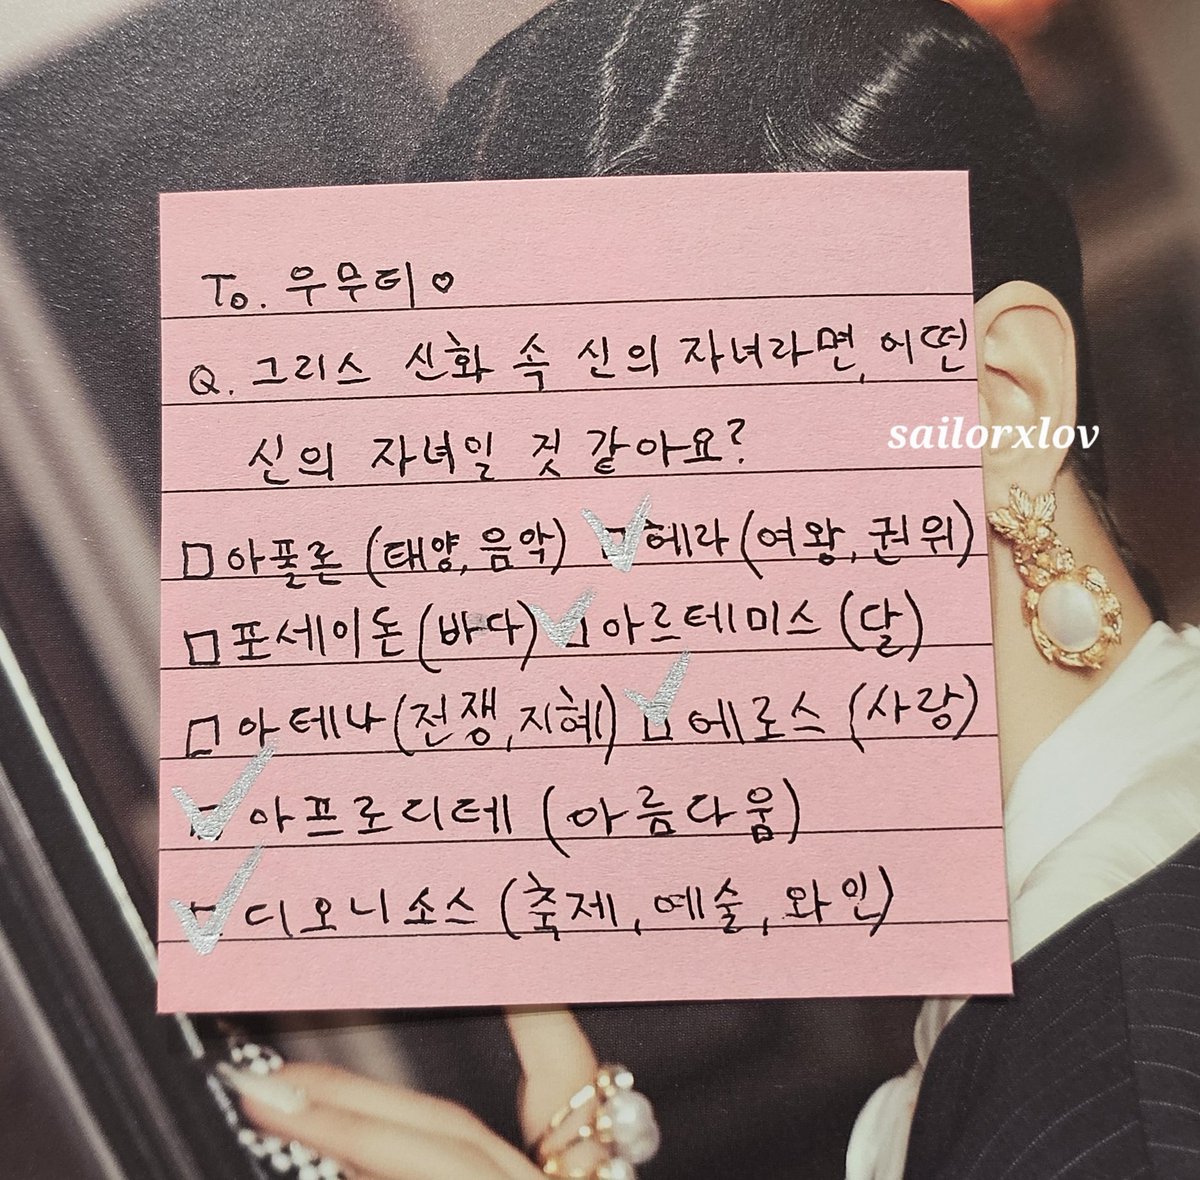 To. 우무티♡
Q. 그리스 신화 속 신의 자녀라면, 어떤
신의 자녀일 것 같아요?
□ 아폴론 (태양, 음악) ☑ 헤라 (여왕, 권위)
□ 포세이돈 (바다) ☑ 아르테미스 (달)
□ 아테나 (전쟁, 지혜) ☑ 에로스 (사랑)
☑ 아프로디테 (아름다움)
☑ 디오니소스 (축제, 예술, 와인)
sailorxlov